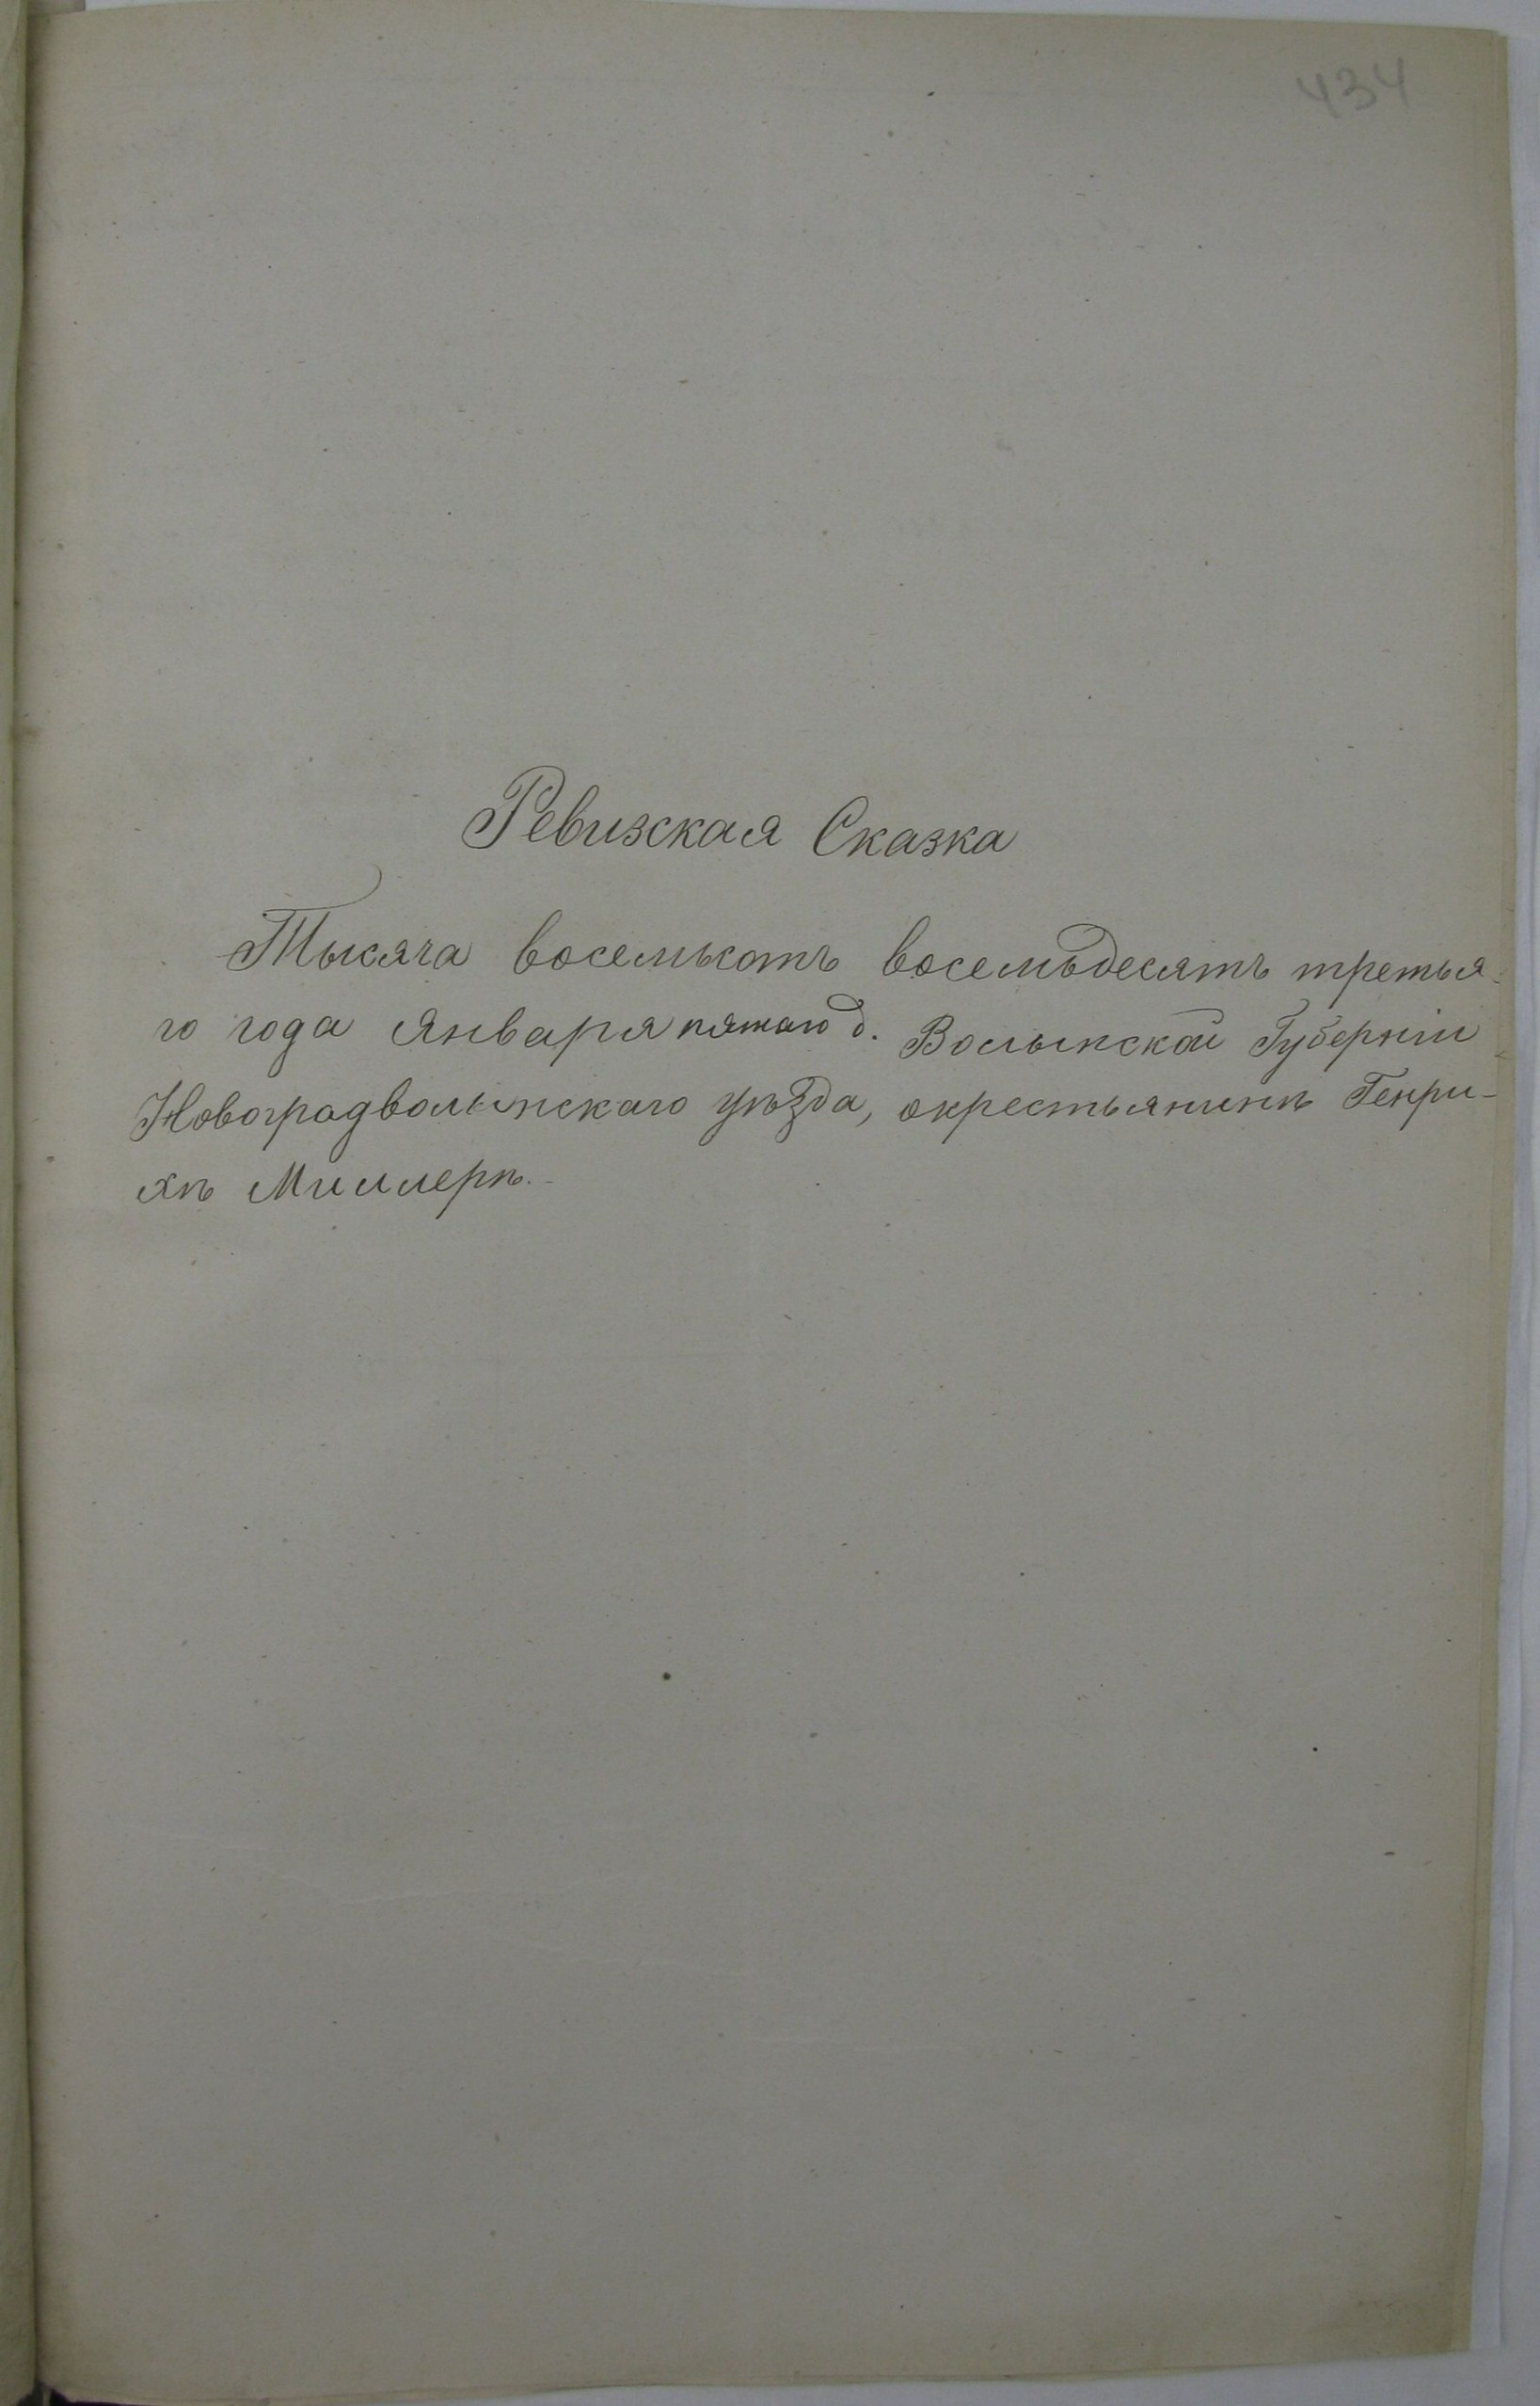 434
Ревизская Сказка
Тысяча восемьсотъ восемьдесятъ третья-
го года Января пятаго д. Волынской Губерніи
Новоградволынскаго уѣзда, окрестьянинѣ Генри-
хѣ Миллерѣ.-